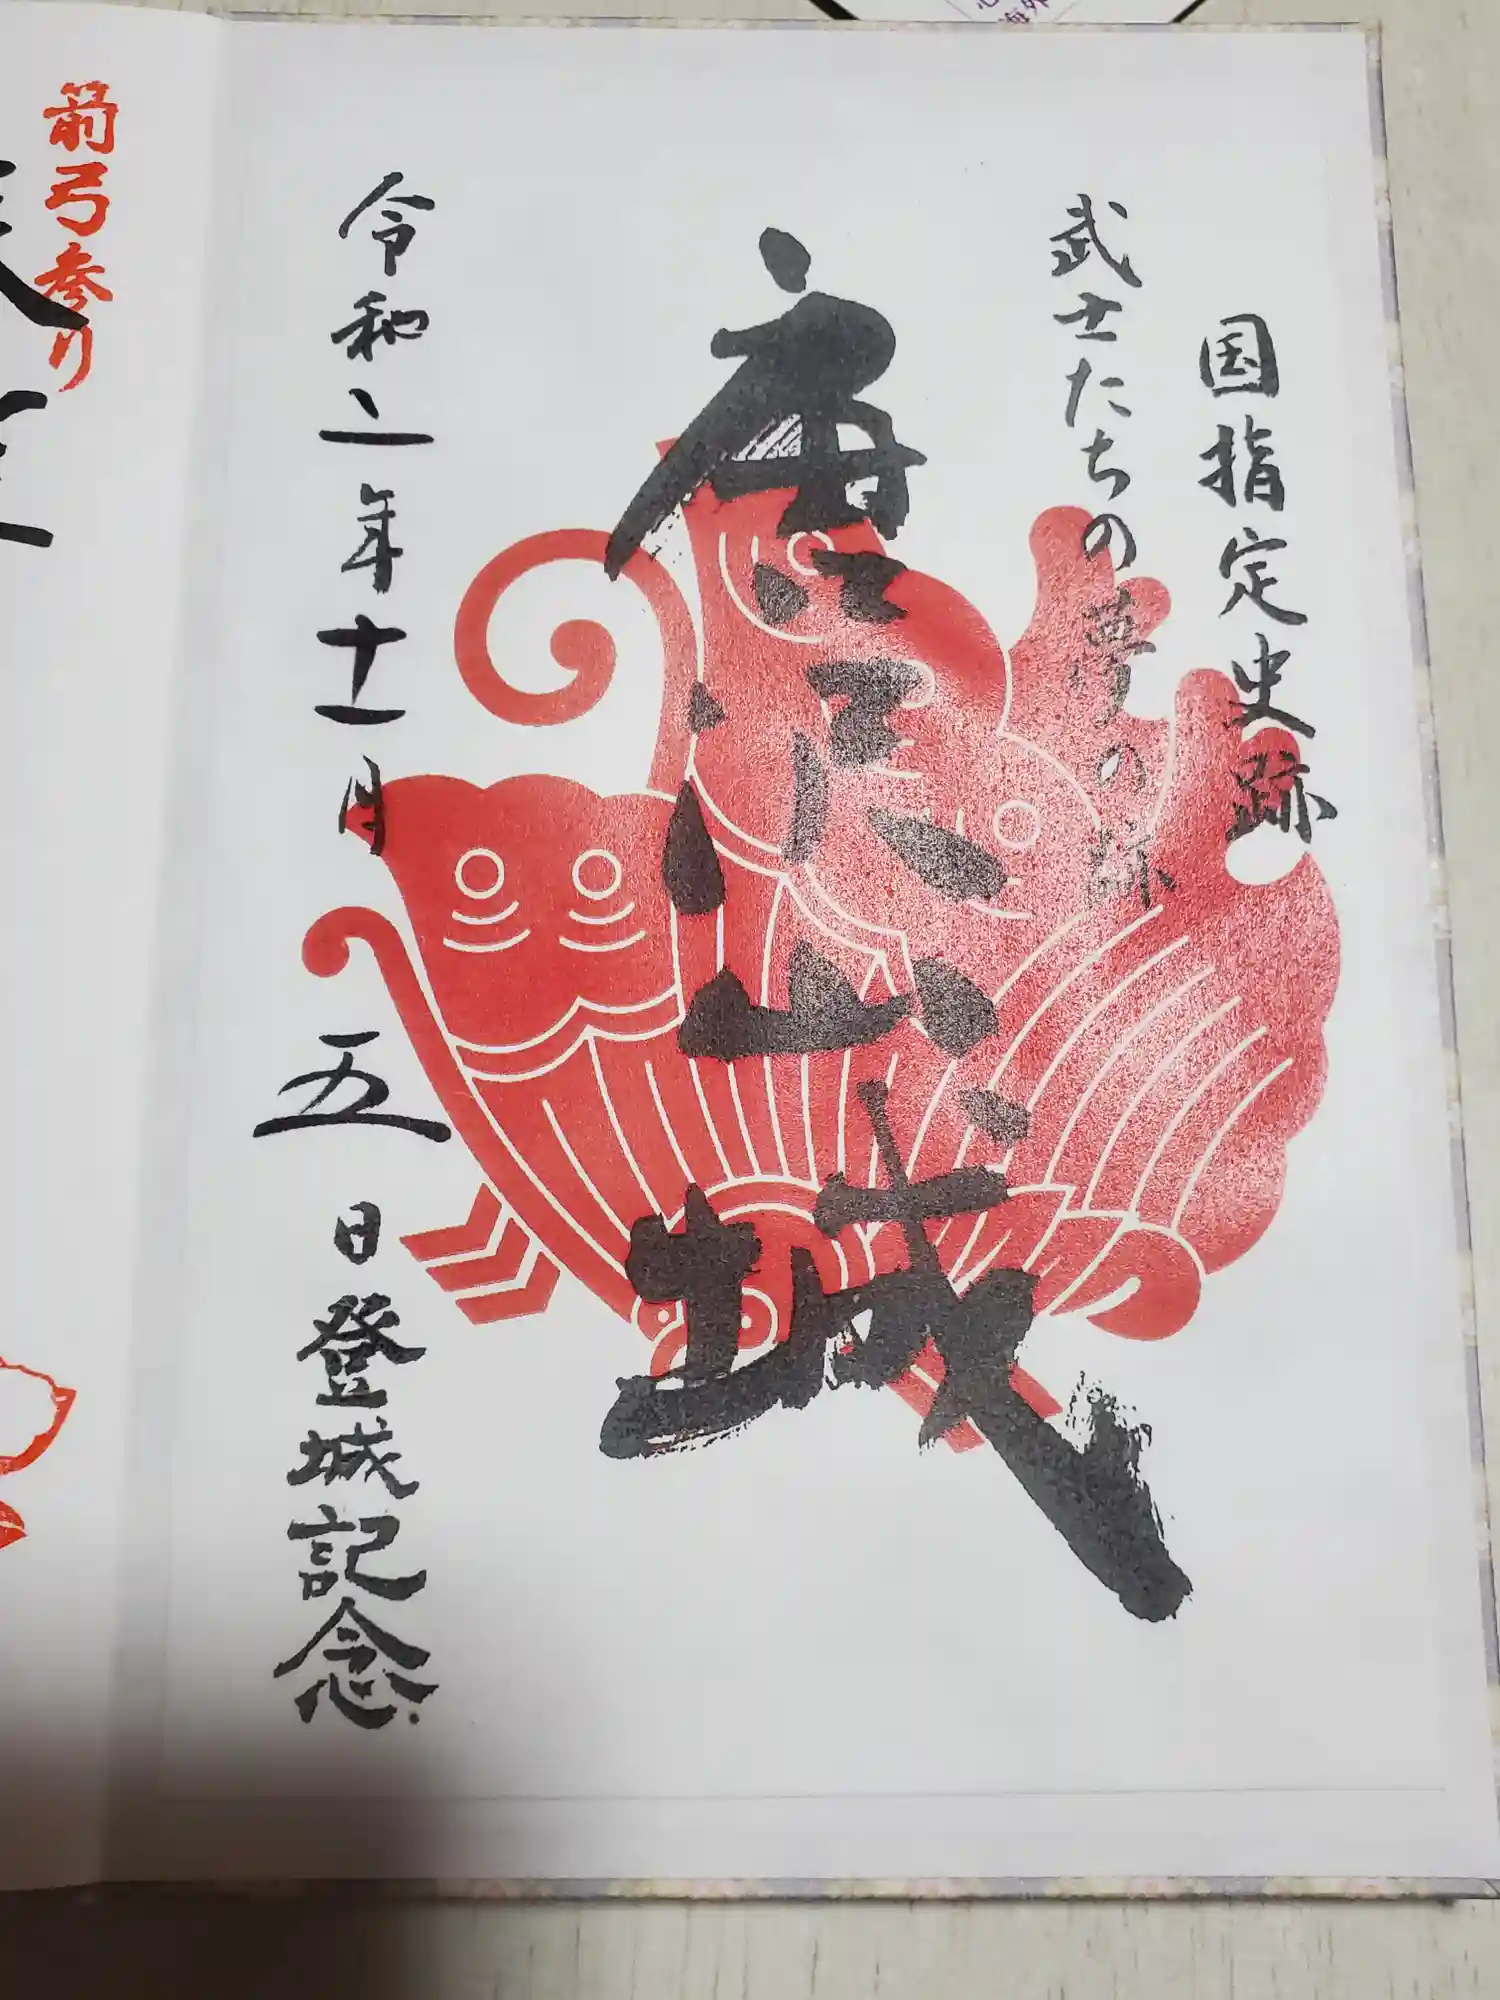 国指定史跡
武士たちの夢の跡
唐沢山城
令和二年十一月五日登城記念
箭弓参り